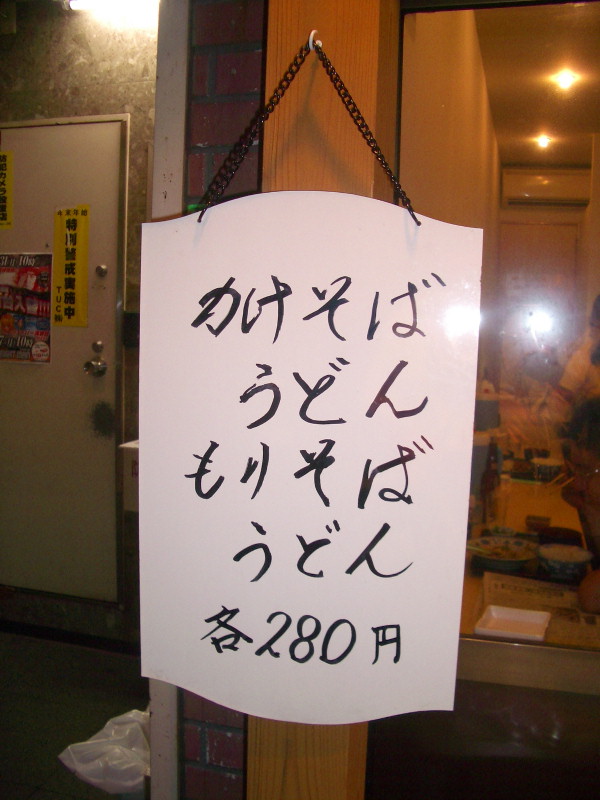 かけそば
うどん
もりそば
うどん
各280円
特別警戒実施中
TUC㈱